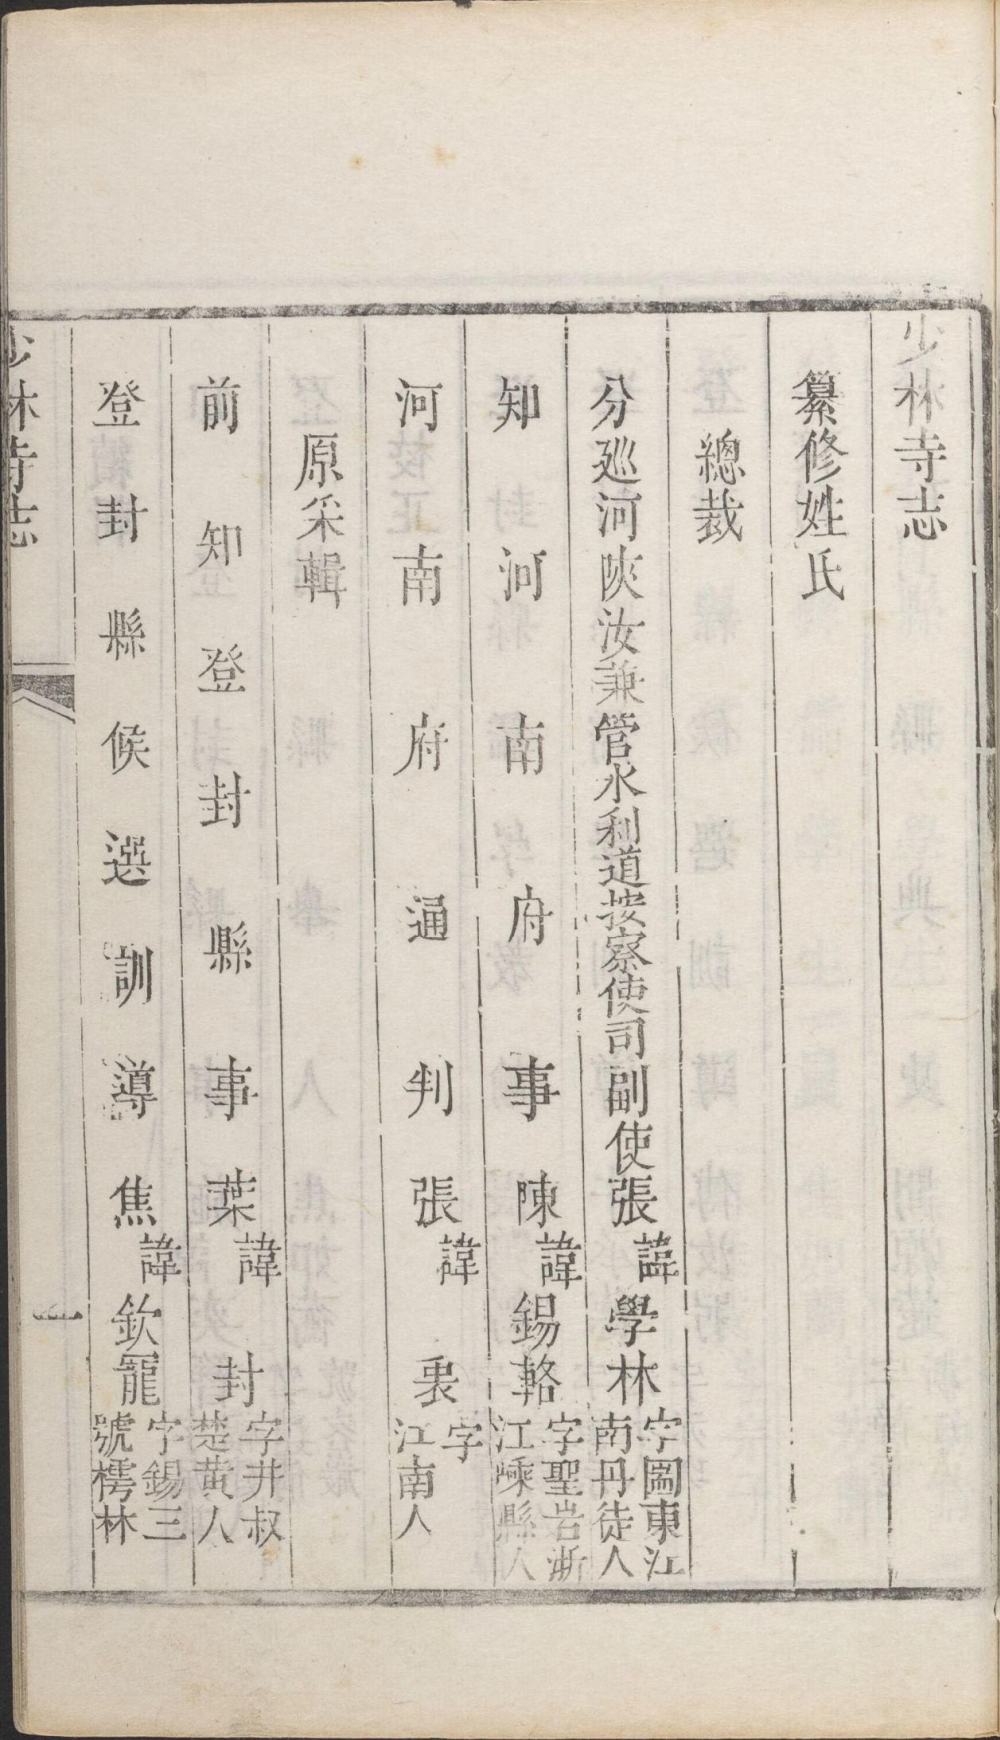 少林寺志
纂修姓氏
總裁
分廵河陝汝兼管水利道按察使司副使張諱學林字圖東江南丹徒人
知河南府事陳諱錫輅字聖岩浙江嵊縣人
河南府通判張諱裊字江南人
原采輯
前知登封縣事葉諱封字井叔楚黄人
登封縣候選訓導焦諱欽寵字錫三號樗林
少林寺志
一